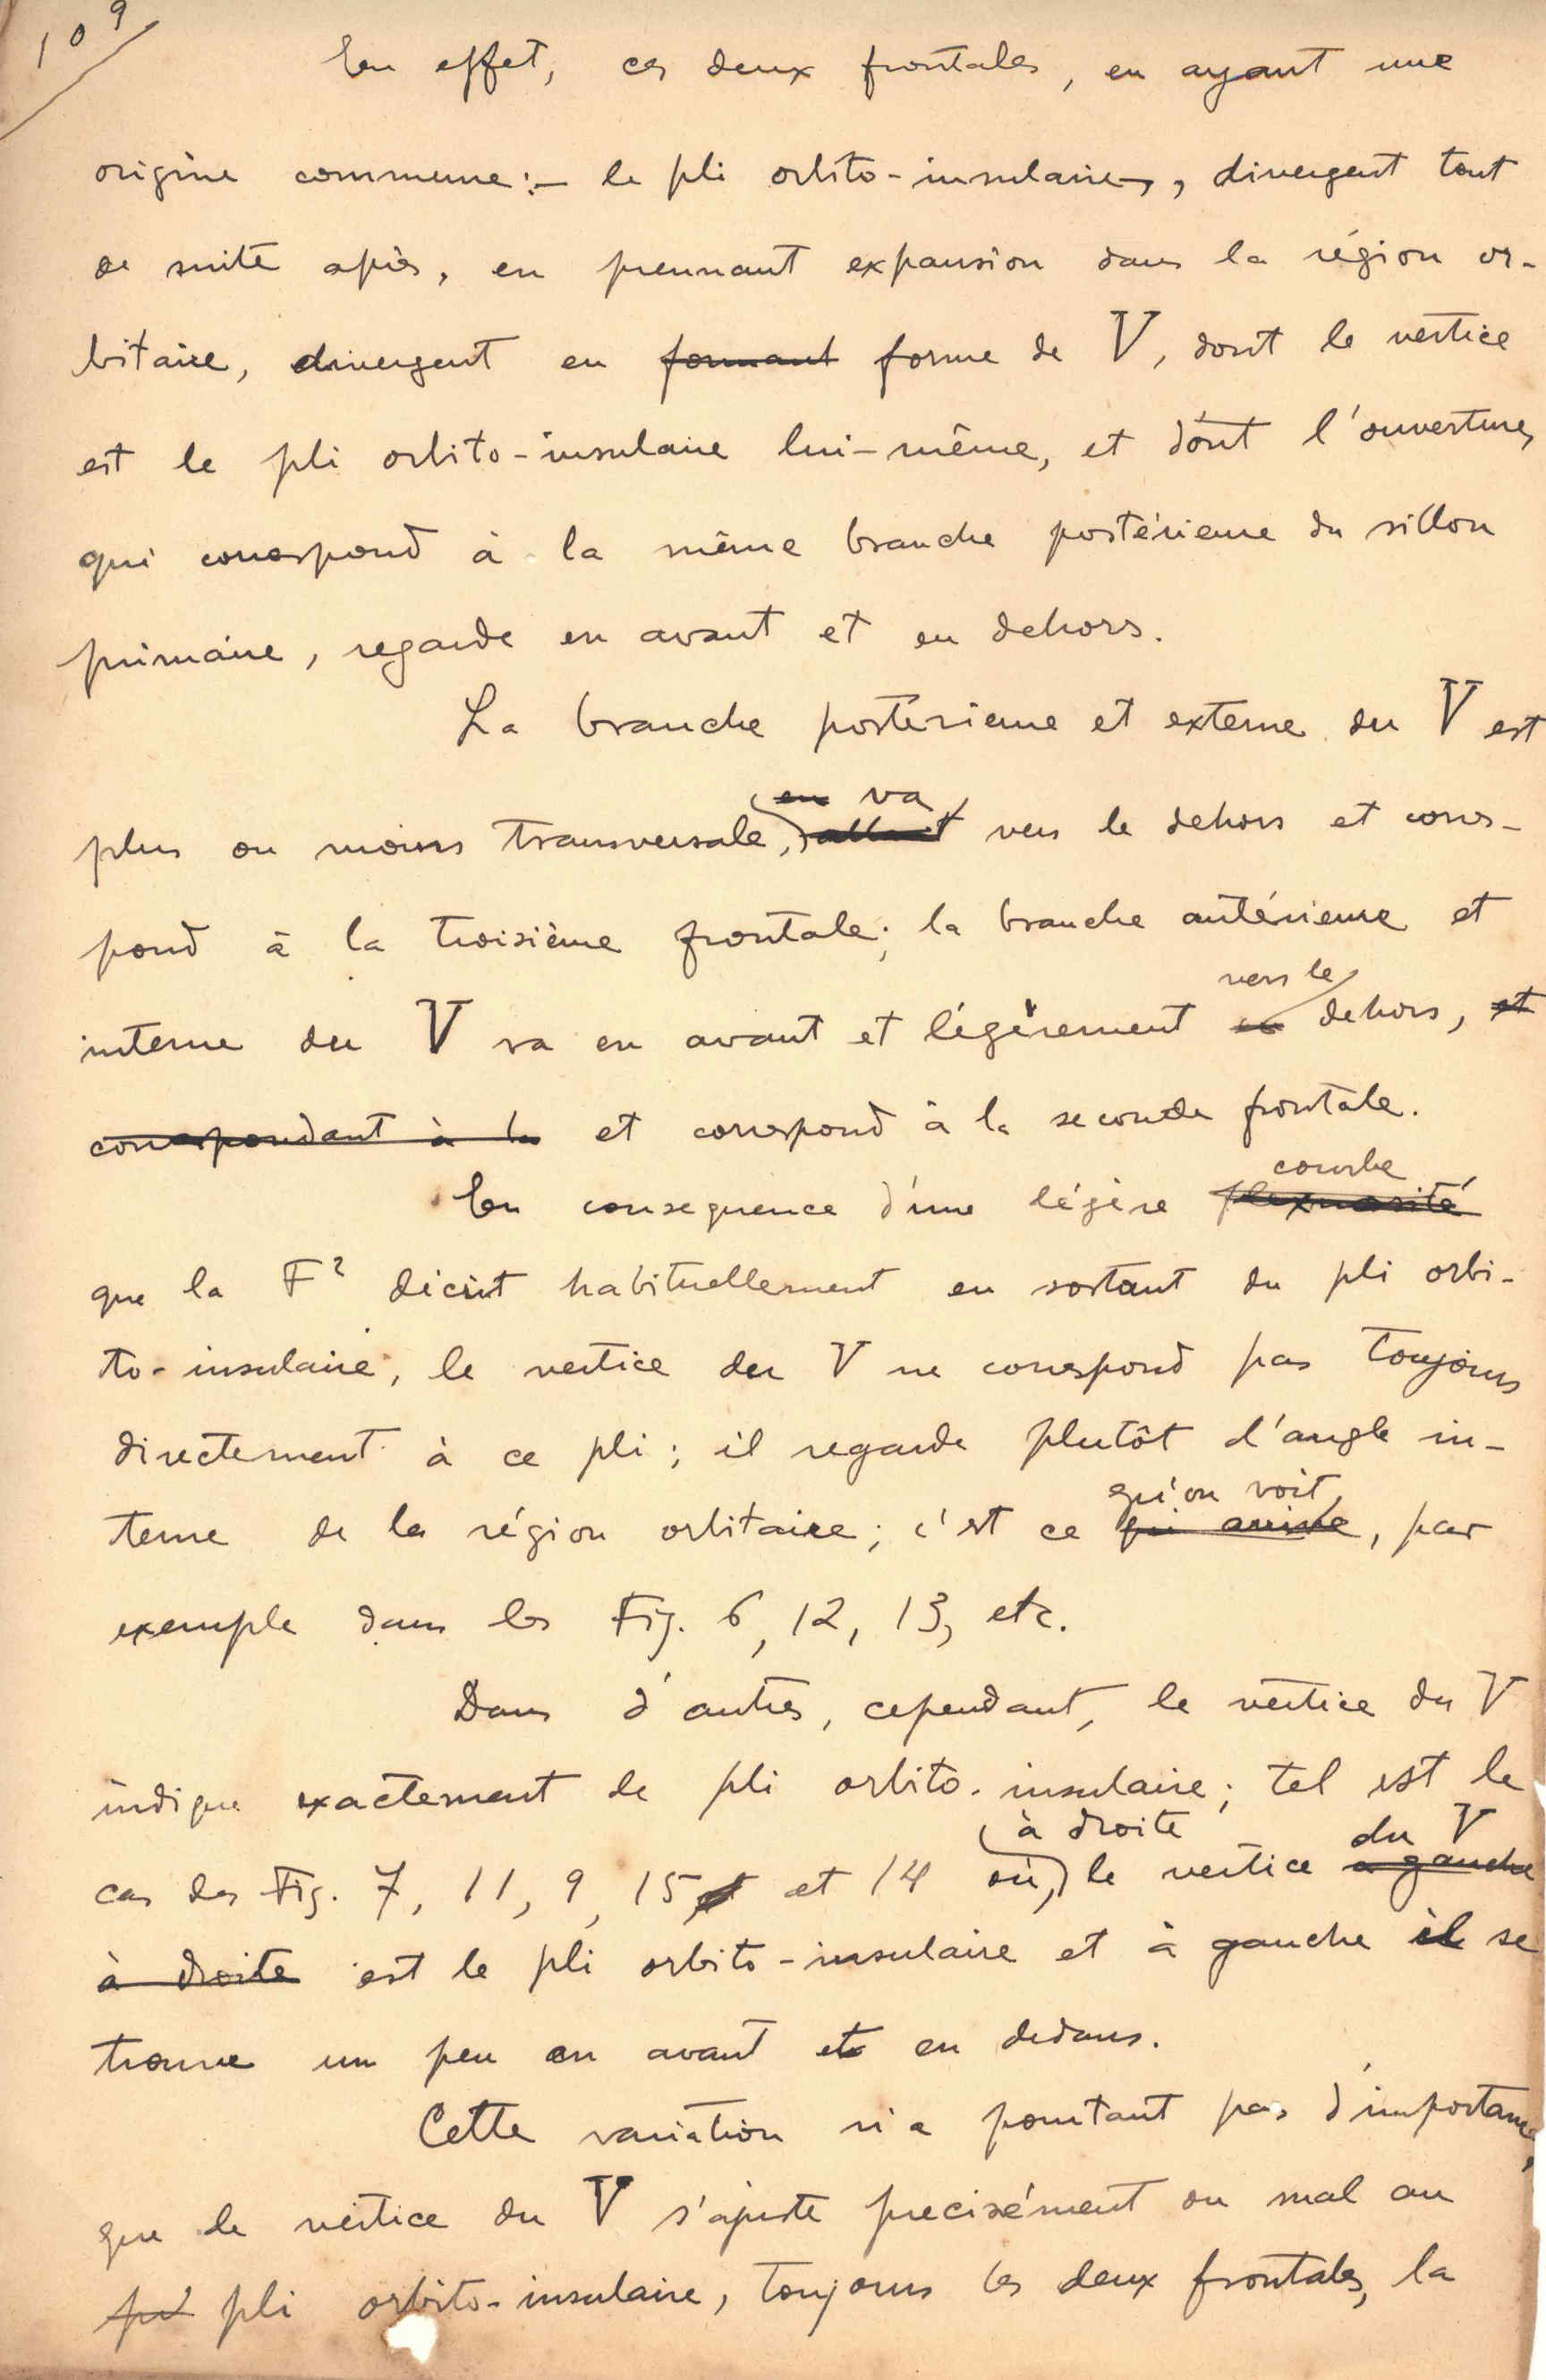 109
En effet, ces deux frontales, en ayant une
origine commune :- le pli orbito-insulaire-, divergent tout
de suite après, en prennant expansion dans la région or-
bitaire, divergent en formant forme de V, dont le vertice
est le pli orbito-insulaire lui-même, et dont l'ouverture,
qui correspond à la même branche postérieure du sillon
primaire, regarde en avant et en dehors.
La branche postérieure et externe du V est
en va
plus ou moins transversale, allant vers le dehors et corres-
pond à la troisième frontale; la branche antérieure et
vers le
interne du V va en avant et légèrement en dehors, et
correspondant à la et correspond à la seconde frontale.
courbe
En consequence d'une légère flexuosité
que la F² décrit habituellement en sortant du pli orbi-
to-insulaire, le vertice du V ne correspond pas toujours
directement à ce pli; il regarde plutôt l'angle in-
qu'on voit,
terne de la région orbitaire; c'est ce qui arrive, par
exemple dans les Fig. 6, 12, 13, etc.
Dans d'autres, cependant, le vertice du V
indique exactement le pli orbito-insulaire; tel est le
à droite du V
cas des Fig. 7, 11, 9, 15, et et 14 où, le vertice a gauche
à droite est le pli orbito-insulaire et à gauche il se
trouve un peu en avant et en dedans.
Cette variation n'a pourtant pas d'importance,
que le vertice du V s'ajuste precisément ou mal au
pli orbito-insulaire, toujours les deux frontales, la